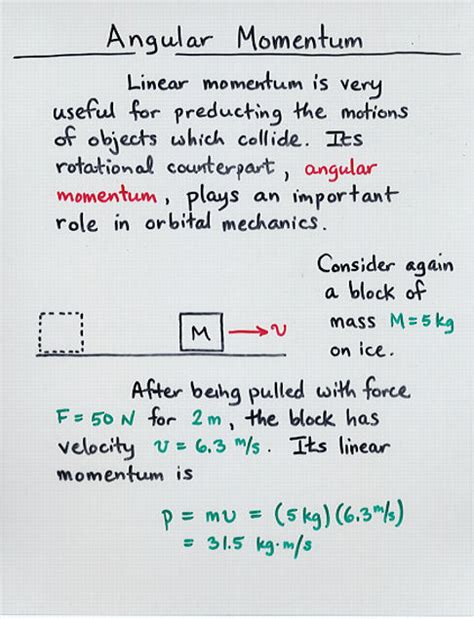 Angular Momentum
Linear momentum is very
useful for preducting the motions
of objects which collide. Its
rotational counterpart, angular
momentum, plays an important
role in orbital mechanics.
Consider again
a block of
mass M=5 kg
on ice.
M → v
After being pulled with force
F = 50 N for 2m, the block has
velocity v = 6.3 m/s. Its linear
momentum is
p = mv = (5 kg)(6.3 m/s)
= 31.5 kg·m/s